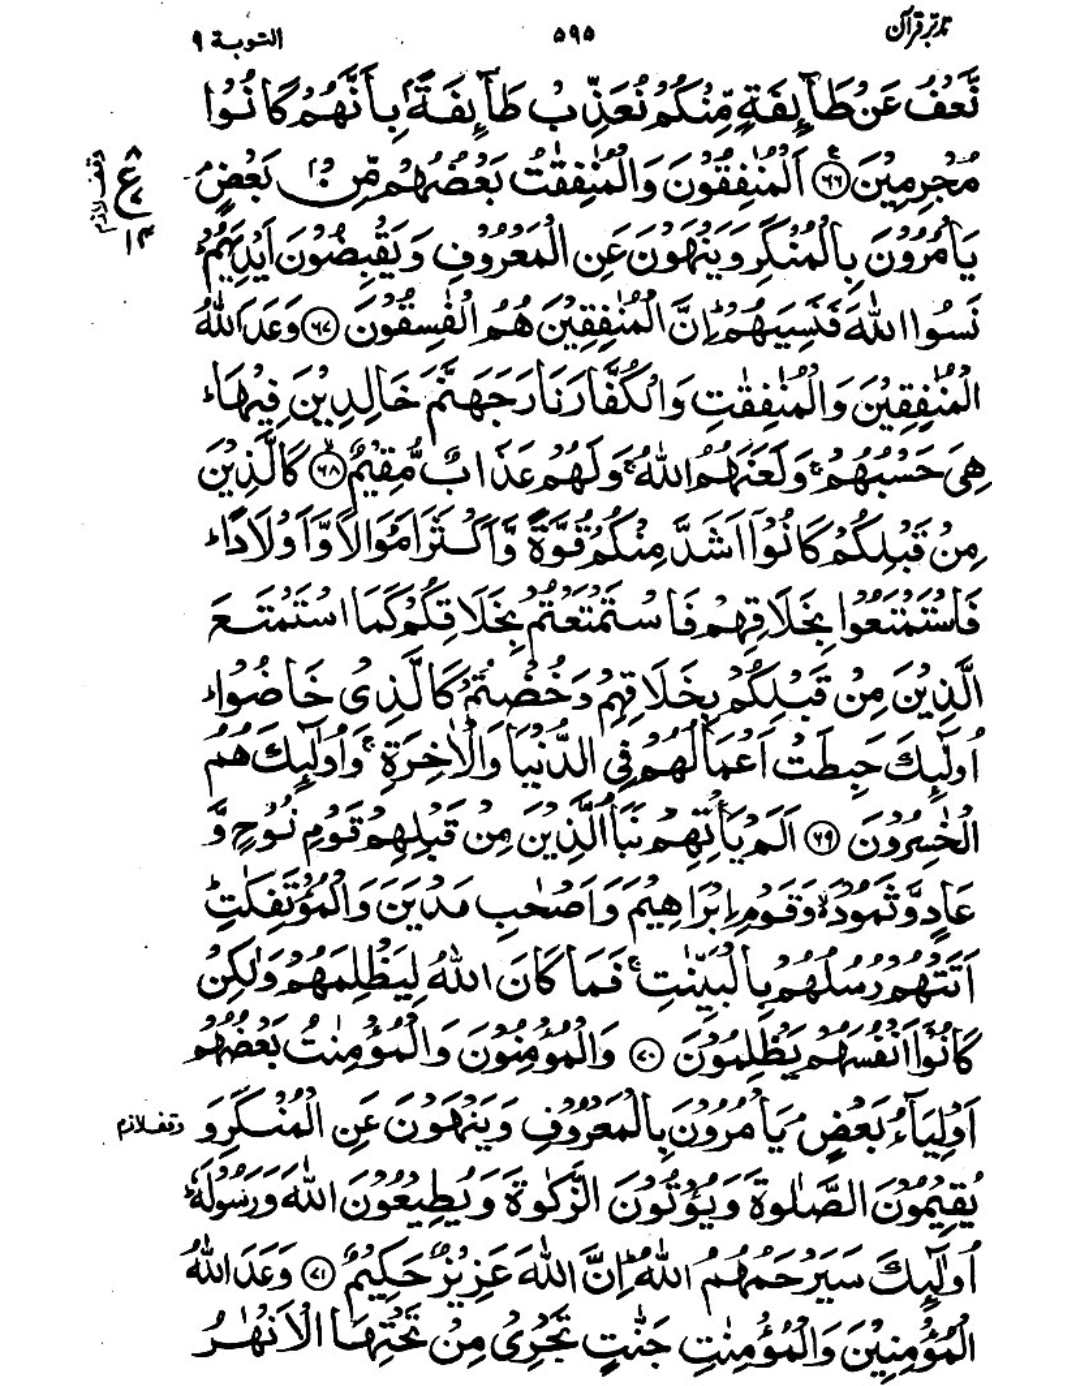 تدبر قرآن ۵۹۵ التوبة ۹
نَّعْفُ عَنْ طَآئِفَةٍ مِّنْكُمْ نُعَذِّبْ طَآئِفَةًۢ بِاَنَّهُمْ كَانُوْا
مُجْرِمِيْنَ ﴿۶۶﴾ اَلْمُنٰفِقُوْنَ وَالْمُنٰفِقٰتُ بَعْضُهُمْ مِّنْۢ بَعْضٍ
وقف لازم
ع
۸
۱۴
يَاْمُرُوْنَ بِالْمُنْكَرِ وَيَنْهَوْنَ عَنِ الْمَعْرُوْفِ وَيَقْبِضُوْنَ اَيْدِيَهُمْ ؕ
نَسُوا اللّٰهَ فَنَسِيَهُمْ ؕ اِنَّ الْمُنٰفِقِيْنَ هُمُ الْفٰسِقُوْنَ ﴿۶۷﴾ وَعَدَ اللّٰهُ
الْمُنٰفِقِيْنَ وَالْمُنٰفِقٰتِ وَالْكُفَّارَ نَارَ جَهَنَّمَ خَالِدِيْنَ فِيْهَا ؕ
هِيَ حَسْبُهُمْ ۚ وَلَعَنَهُمُ اللّٰهُ ۚ وَلَهُمْ عَذَابٌ مُّقِيْمٌ ﴿۶۸﴾ كَالَّذِيْنَ
مِنْ قَبْلِكُمْ كَانُوْٓا اَشَدَّ مِنْكُمْ قُوَّةً وَّاَكْثَرَ اَمْوَالًا وَّاَوْلَادًا ؕ
فَاسْتَمْتَعُوْا بِخَلَاقِهِمْ فَاسْتَمْتَعْتُمْ بِخَلَاقِكُمْ كَمَا اسْتَمْتَعَ
الَّذِيْنَ مِنْ قَبْلِكُمْ بِخَلَاقِهِمْ وَخُضْتُمْ كَالَّذِيْ خَاضُوْا ؕ
اُولٰٓئِكَ حَبِطَتْ اَعْمَالُهُمْ فِي الدُّنْيَا وَالْاٰخِرَةِ ۚ وَاُولٰٓئِكَ هُمُ
الْخٰسِرُوْنَ ﴿۶۹﴾ اَلَمْ يَاْتِهِمْ نَبَاُ الَّذِيْنَ مِنْ قَبْلِهِمْ قَوْمِ نُوْحٍ وَّ
عَادٍ وَّثَمُوْدَ ۙ وَقَوْمِ اِبْرٰهِيْمَ وَاَصْحٰبِ مَدْيَنَ وَالْمُؤْتَفِكٰتِ ؕ
اَتَتْهُمْ رُسُلُهُمْ بِالْبَيِّنٰتِ ۚ فَمَا كَانَ اللّٰهُ لِيَظْلِمَهُمْ وَلٰكِنْ
كَانُوْٓا اَنْفُسَهُمْ يَظْلِمُوْنَ ﴿۷۰﴾ وَالْمُؤْمِنُوْنَ وَالْمُؤْمِنٰتُ بَعْضُهُمْ
اَوْلِيَآءُ بَعْضٍ يَاْمُرُوْنَ بِالْمَعْرُوْفِ وَيَنْهَوْنَ عَنِ الْمُنْكَرِ وَ
وقف لازم
يُقِيْمُوْنَ الصَّلٰوةَ وَيُؤْتُوْنَ الزَّكٰوةَ وَيُطِيْعُوْنَ اللّٰهَ وَرَسُوْلَهٗ ؕ
اُولٰٓئِكَ سَيَرْحَمُهُمُ اللّٰهُ ؕ اِنَّ اللّٰهَ عَزِيْزٌ حَكِيْمٌ ﴿۷۱﴾ وَعَدَ اللّٰهُ
الْمُؤْمِنِيْنَ وَالْمُؤْمِنٰتِ جَنّٰتٍ تَجْرِيْ مِنْ تَحْتِهَا الْاَنْهٰرُ